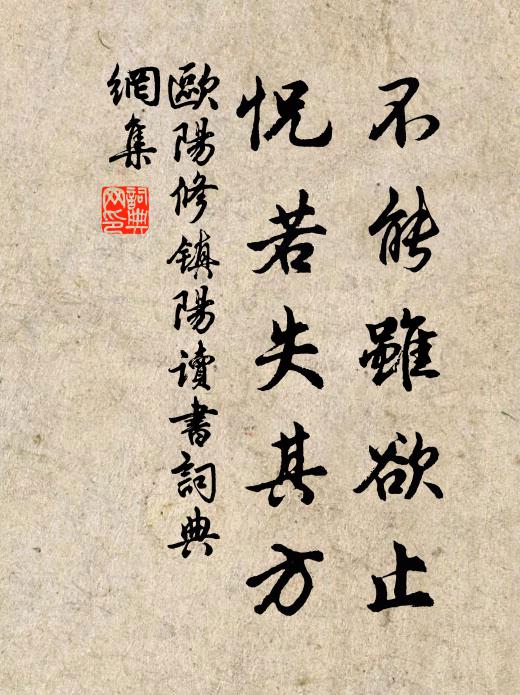 不能雖欲止
怳若失其方
歐陽修鎮陽讀書詞典
網集
詞典
网印